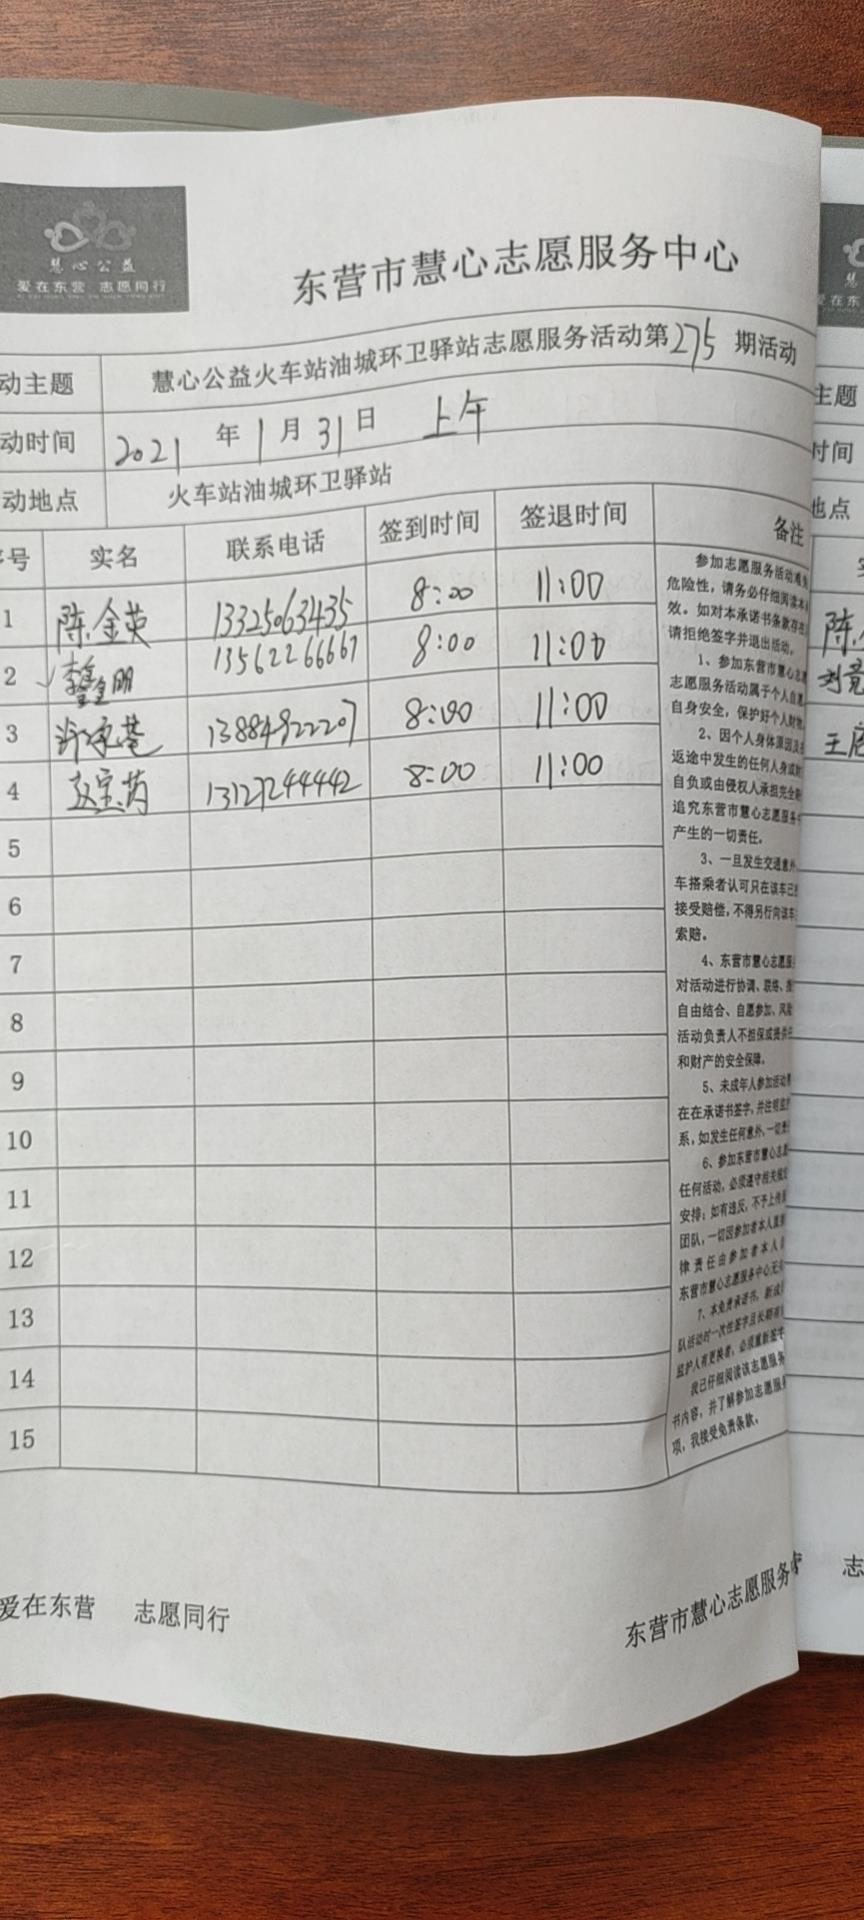 慧心公益
爱在东营 志愿同行
东营市慧心志愿服务中心
动主题 慧心公益火车站油城环卫驿站志愿服务活动第275期活动
动时间 2021年1月31日 上午
动地点 火车站油城环卫驿站
序号 实名 联系电话 签到时间 签退时间 备注
1 陈金英 13325063435 8:00 11:00
2 13562266667 8:00 11:00
3 13884922207 8:00 11:00
4 赵宝芮 13127244442 8:00 11:00
5
6
7
8
9
10
11
12
13
14
15
参加志愿服务活动难免
危险性，请务必仔细阅读本
效。如对本承诺书条款存在
请拒绝签字并退出活动。
1、参加东营市慧心志愿
志愿服务活动属于个人自愿
自身安全，保护好个人财物
2、因个人身体原因及
返途中发生的任何人身或财
自负或由侵权人承担完全
追究东营市慧心志愿服务中
产生的一切责任。
3、一旦发生交通意外
车搭乘者认可只在该车已
接受赔偿，不得另行向该车
索赔。
4、东营市慧心志愿服
对活动进行协调、联络、
自由结合、自愿参加、风险
活动负责人不担保或提供
和财产的安全保障。
5、未成年人参加活动
在在承诺书签字，并注明监护
系，如发生任何意外，一切责
6、参加东营市慧心志愿
任何活动，必须遵守相关规定
安排；如有违反，不予上传
团队，一切因参加者本人直接
律责任由参加者本人
东营市慧心志愿服务中心无
7、本免责承诺书，新成
队活动时一次性签字且长期有
监护人有更换者，必须重新签字
我已仔细阅读该志愿服务
书内容，并了解参加志愿服
项，我接受免责条款。
爱在东营 志愿同行
东营市慧心志愿服务中
主题
时间
地点
陈
王
志